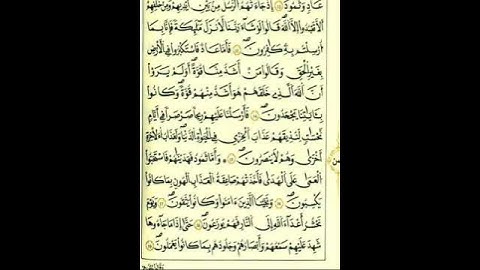 عَادٍ وَثَمُودَ إِذْ جَآءَتْهُمُ الرُّسُلُ مِنۢ بَيْنِ أَيْدِيهِمْ وَمِنْ خَلْفِهِمْ
أَلَّا تَعْبُدُوٓا۟ إِلَّا اللَّهَ قَالُوا۟ لَوْ شَآءَ رَبُّنَا لَأَنزَلَ مَلَٰٓئِكَةً فَإِنَّا بِمَآ
أُرْسِلْتُم بِهِۦ كَٰفِرُونَ ۝ فَأَمَّا عَادٌ فَاسْتَكْبَرُوا۟ فِي الْأَرْضِ
بِغَيْرِ الْحَقِّ وَقَالُوا۟ مَنْ أَشَدُّ مِنَّا قُوَّةً أَوَلَمْ يَرَوْا۟
أَنَّ اللَّهَ الَّذِي خَلَقَهُمْ هُوَ أَشَدُّ مِنْهُمْ قُوَّةً وَكَانُوا۟
بِـَٔايَٰتِنَا يَجْحَدُونَ ۝ فَأَرْسَلْنَا عَلَيْهِمْ رِيحًا صَرْصَرًا فِيٓ أَيَّامٍ
نَّحْسَاتٍ لِّنُذِيقَهُمْ عَذَابَ الْخِزْيِ فِي الْحَيَوٰةِ الدُّنْيَا وَلَعَذَابُ الْأَخِرَةِ
أَخْزَىٰ وَهُمْ لَا يُنصَرُونَ ۝ وَأَمَّا ثَمُودُ فَهَدَيْنَٰهُمْ فَاسْتَحَبُّوا۟
الْعَمَىٰ عَلَى الْهُدَىٰ فَأَخَذَتْهُمْ صَٰعِقَةُ الْعَذَابِ الْهُونِ بِمَا كَانُوا۟
يَكْسِبُونَ ۝ وَنَجَّيْنَا الَّذِينَ ءَامَنُوا۟ وَكَانُوا۟ يَتَّقُونَ ۝ وَيَوْمَ
نَحْشُرُ أَعْدَآءَ اللَّهِ إِلَى النَّارِ فَهُمْ يُوزَعُونَ ۝ حَتَّىٰٓ إِذَا مَا جَآءُوهَا
شَهِدَ عَلَيْهِمْ سَمْعُهُمْ وَأَبْصَٰرُهُمْ وَجُلُودُهُم بِمَا كَانُوا۟ يَعْمَلُونَ ۝